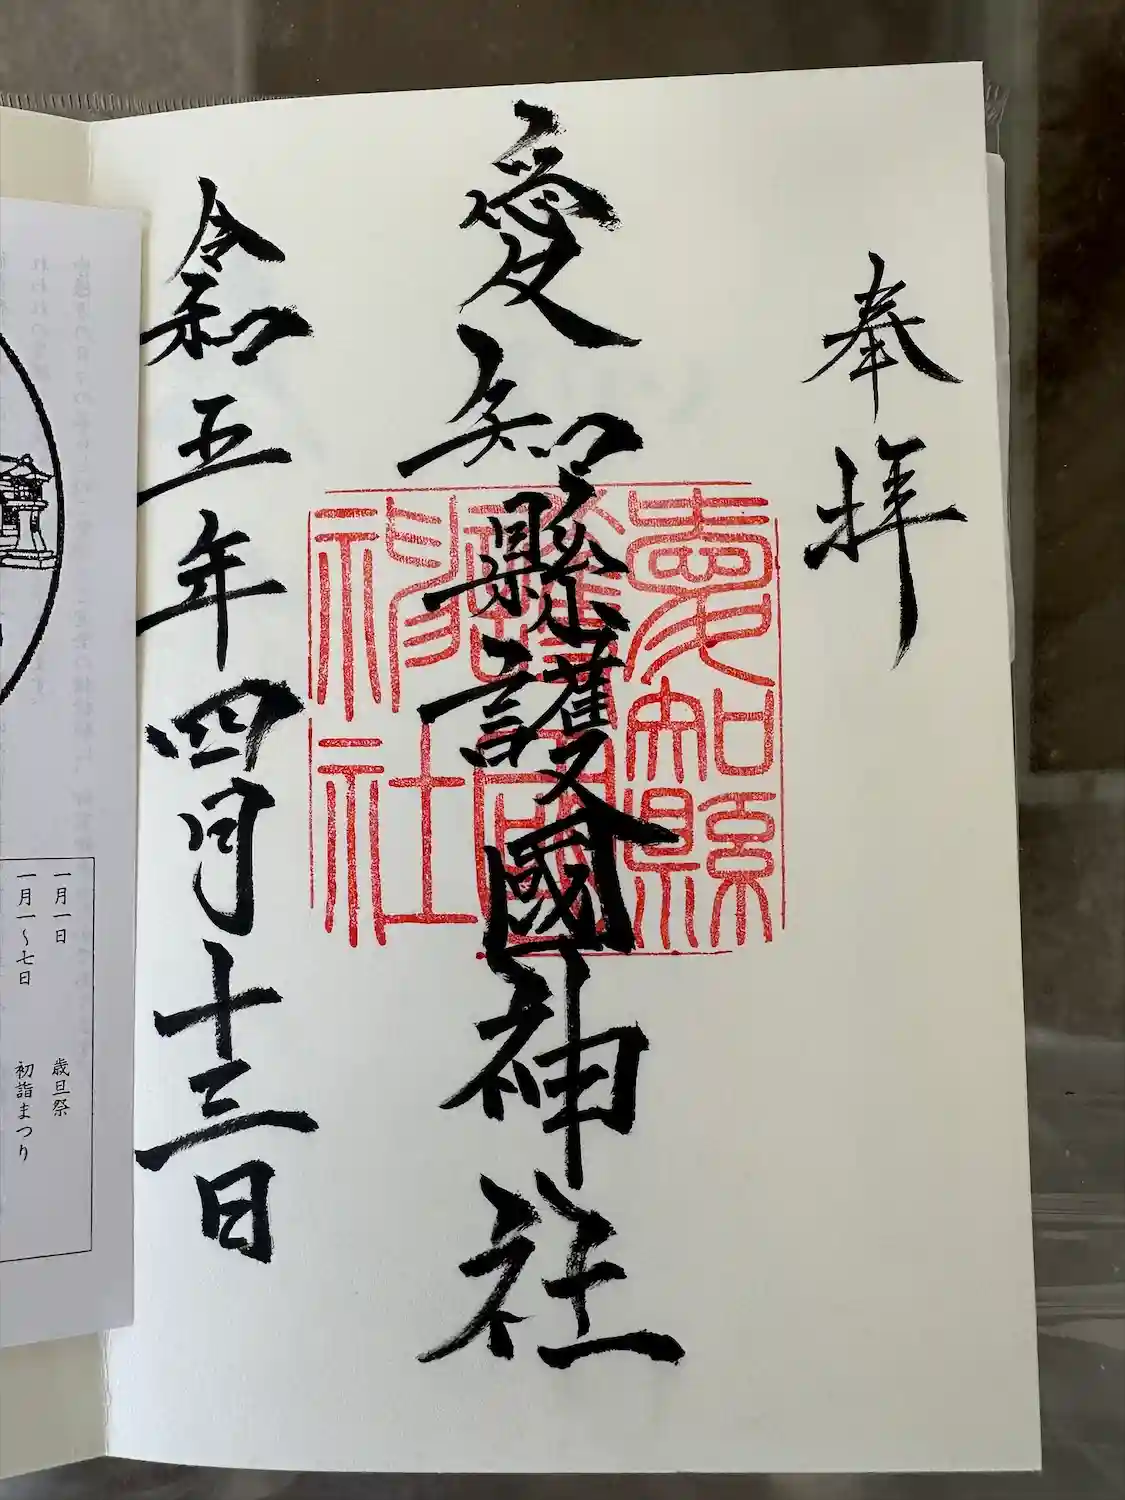 奉拝
愛知縣護國神社
愛知縣
護國
神社
令和五年四月十三日
一月一日 歳旦祭
一月一〜七日 初詣まつり